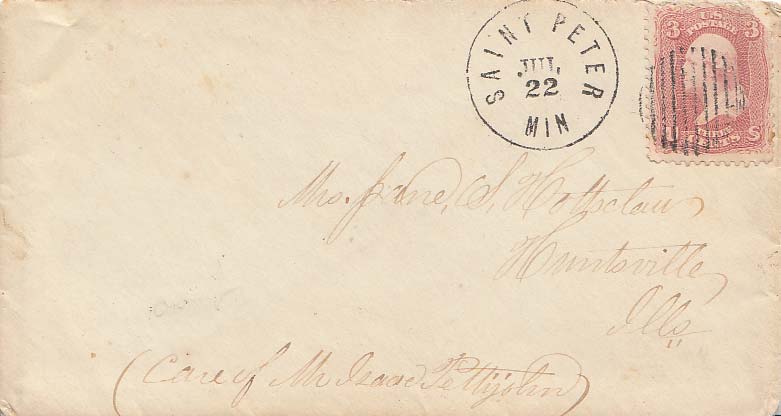 SAINT PETER
JUL
22
MIN
3 U.S. 3
POSTAGE
THREE
CENTS
U S
Mrs. Jane, S, Holtsclaw
Huntsville
Ills
(Care of Mr Isaac Pettijohn)